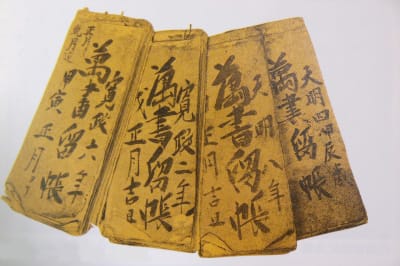 天明四甲辰歳
萬書留帳
天明八年
萬書留帳
正月吉日
寛政二年
萬書留帳
戌正月吉日
寛政六年
萬書留帳
甲寅正月